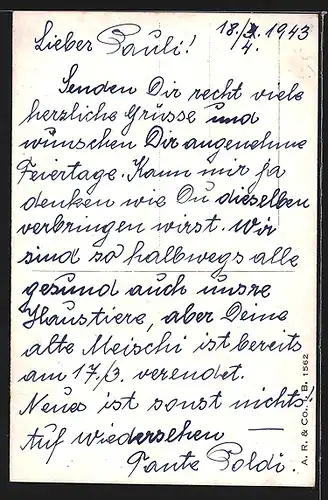 18./4. 1943
Lieber Pauli!
Senden Dir recht viele
herzliche Grüsse und
wünschen Dir angenehme
Feiertage. Kann mir ja
denken wie Du dieselben
verbringen wirst. Wir
sind so halbwegs alle
gesund auch unsre
Haustiere, aber Deine
alte Meischi ist bereits
am 17./3. verendet.
Neues ist sonst nichts!
Auf Wiedersehen —
Tante Poldi.
A. R. & Co. i. B. 1562